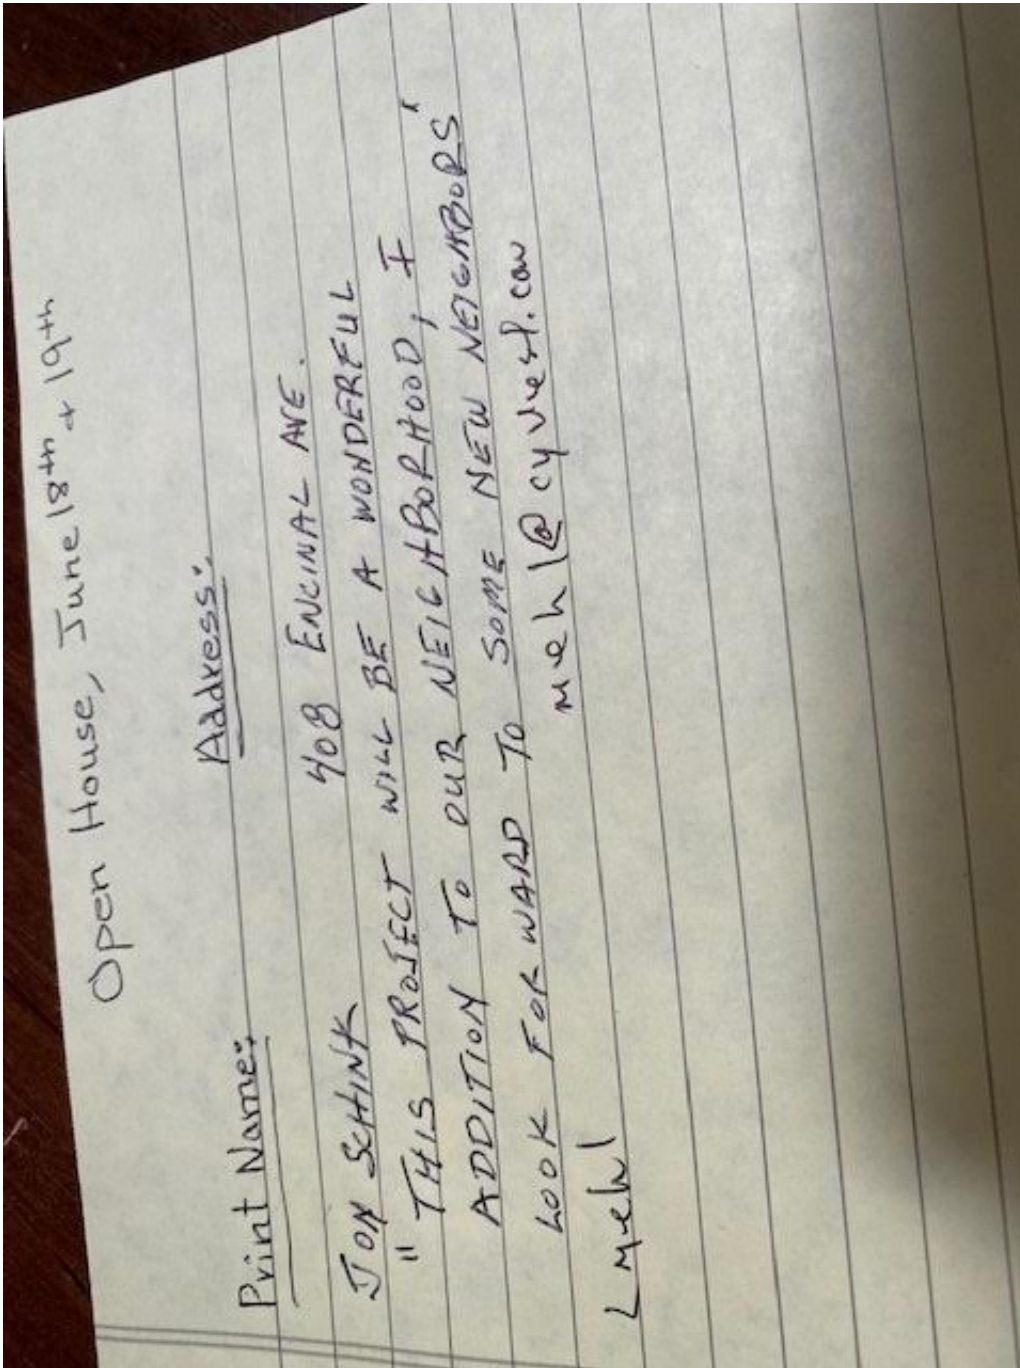 Open House, June 18th + 19th
Print Name: Address:
JON SCHINK 408 ENCINAL AVE.
"THIS PROJECT WILL BE A WONDERFUL
ADDITION TO OUR NEIGHBORHOOD, I
LOOK FORWARD TO SOME NEW NEIGHBORS"
L Mehl mehl@cyvest.com